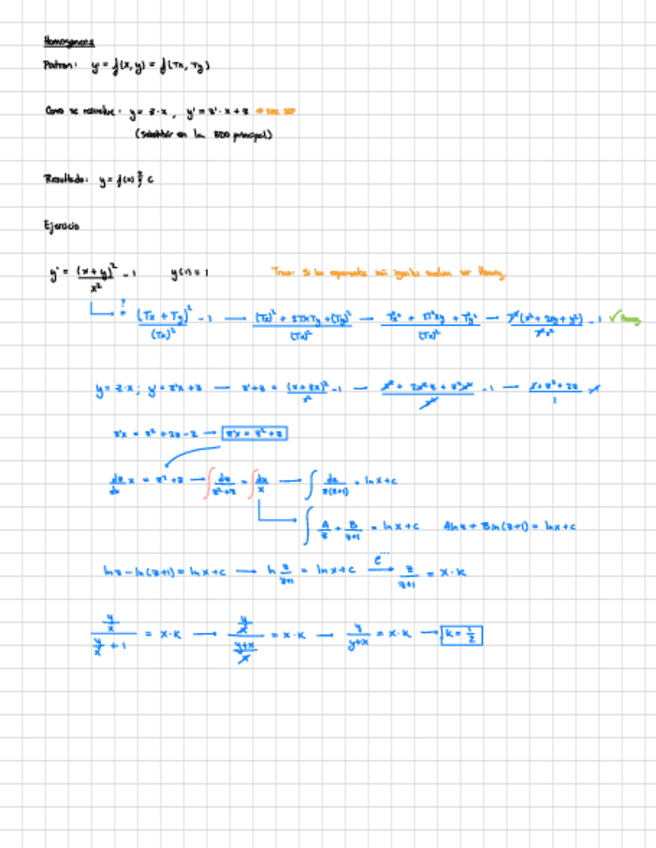 Homogenea
Patron: y' = f(x, y) = f(Tx, Ty)
Como se resuelve: y = z·x, y' = z'·x + z
(substituir en la EDO principal)
Resultado: y = f(x) C
Ejercicio
y' = (x+y)²/x² - 1 y(1) = 1 Truco: Si los exponentes son iguales suelen ser Homog
? (Tx + Ty)²/(Tx)² - 1 — (Tx)² + 2TxTy + (Ty)²/(Tx)² — T²x² + 2T²xy + T²y²/(Tx)² — T²(x² + 2xy + y²)/T²x² - 1 ✓ Homog
y = z·x; y' = z'x + z — z'x + z = (x + zx)²/x² - 1 — x² + 2x²z + z²x²/x² - 1 — 1 + z² + 2z/1 - 1
z'x = z² + 2z - z → z'x = z² + z
dz/dx x = z² + z → ∫ dz/z²+z = ∫ dx/x → ∫ dz/z(z+1) = ln x + c
∫ A/z + B/z+1 = ln x + c A ln z + B ln(z+1) = ln x + c
ln z - ln(z+1) = ln x + c → ln z/z+1 = ln x + c e^... → z/z+1 = x·k
y/x / y/x + 1 = x·k → y/x / y+x/x = x·k → y/y+x = x·k → k = 1/2